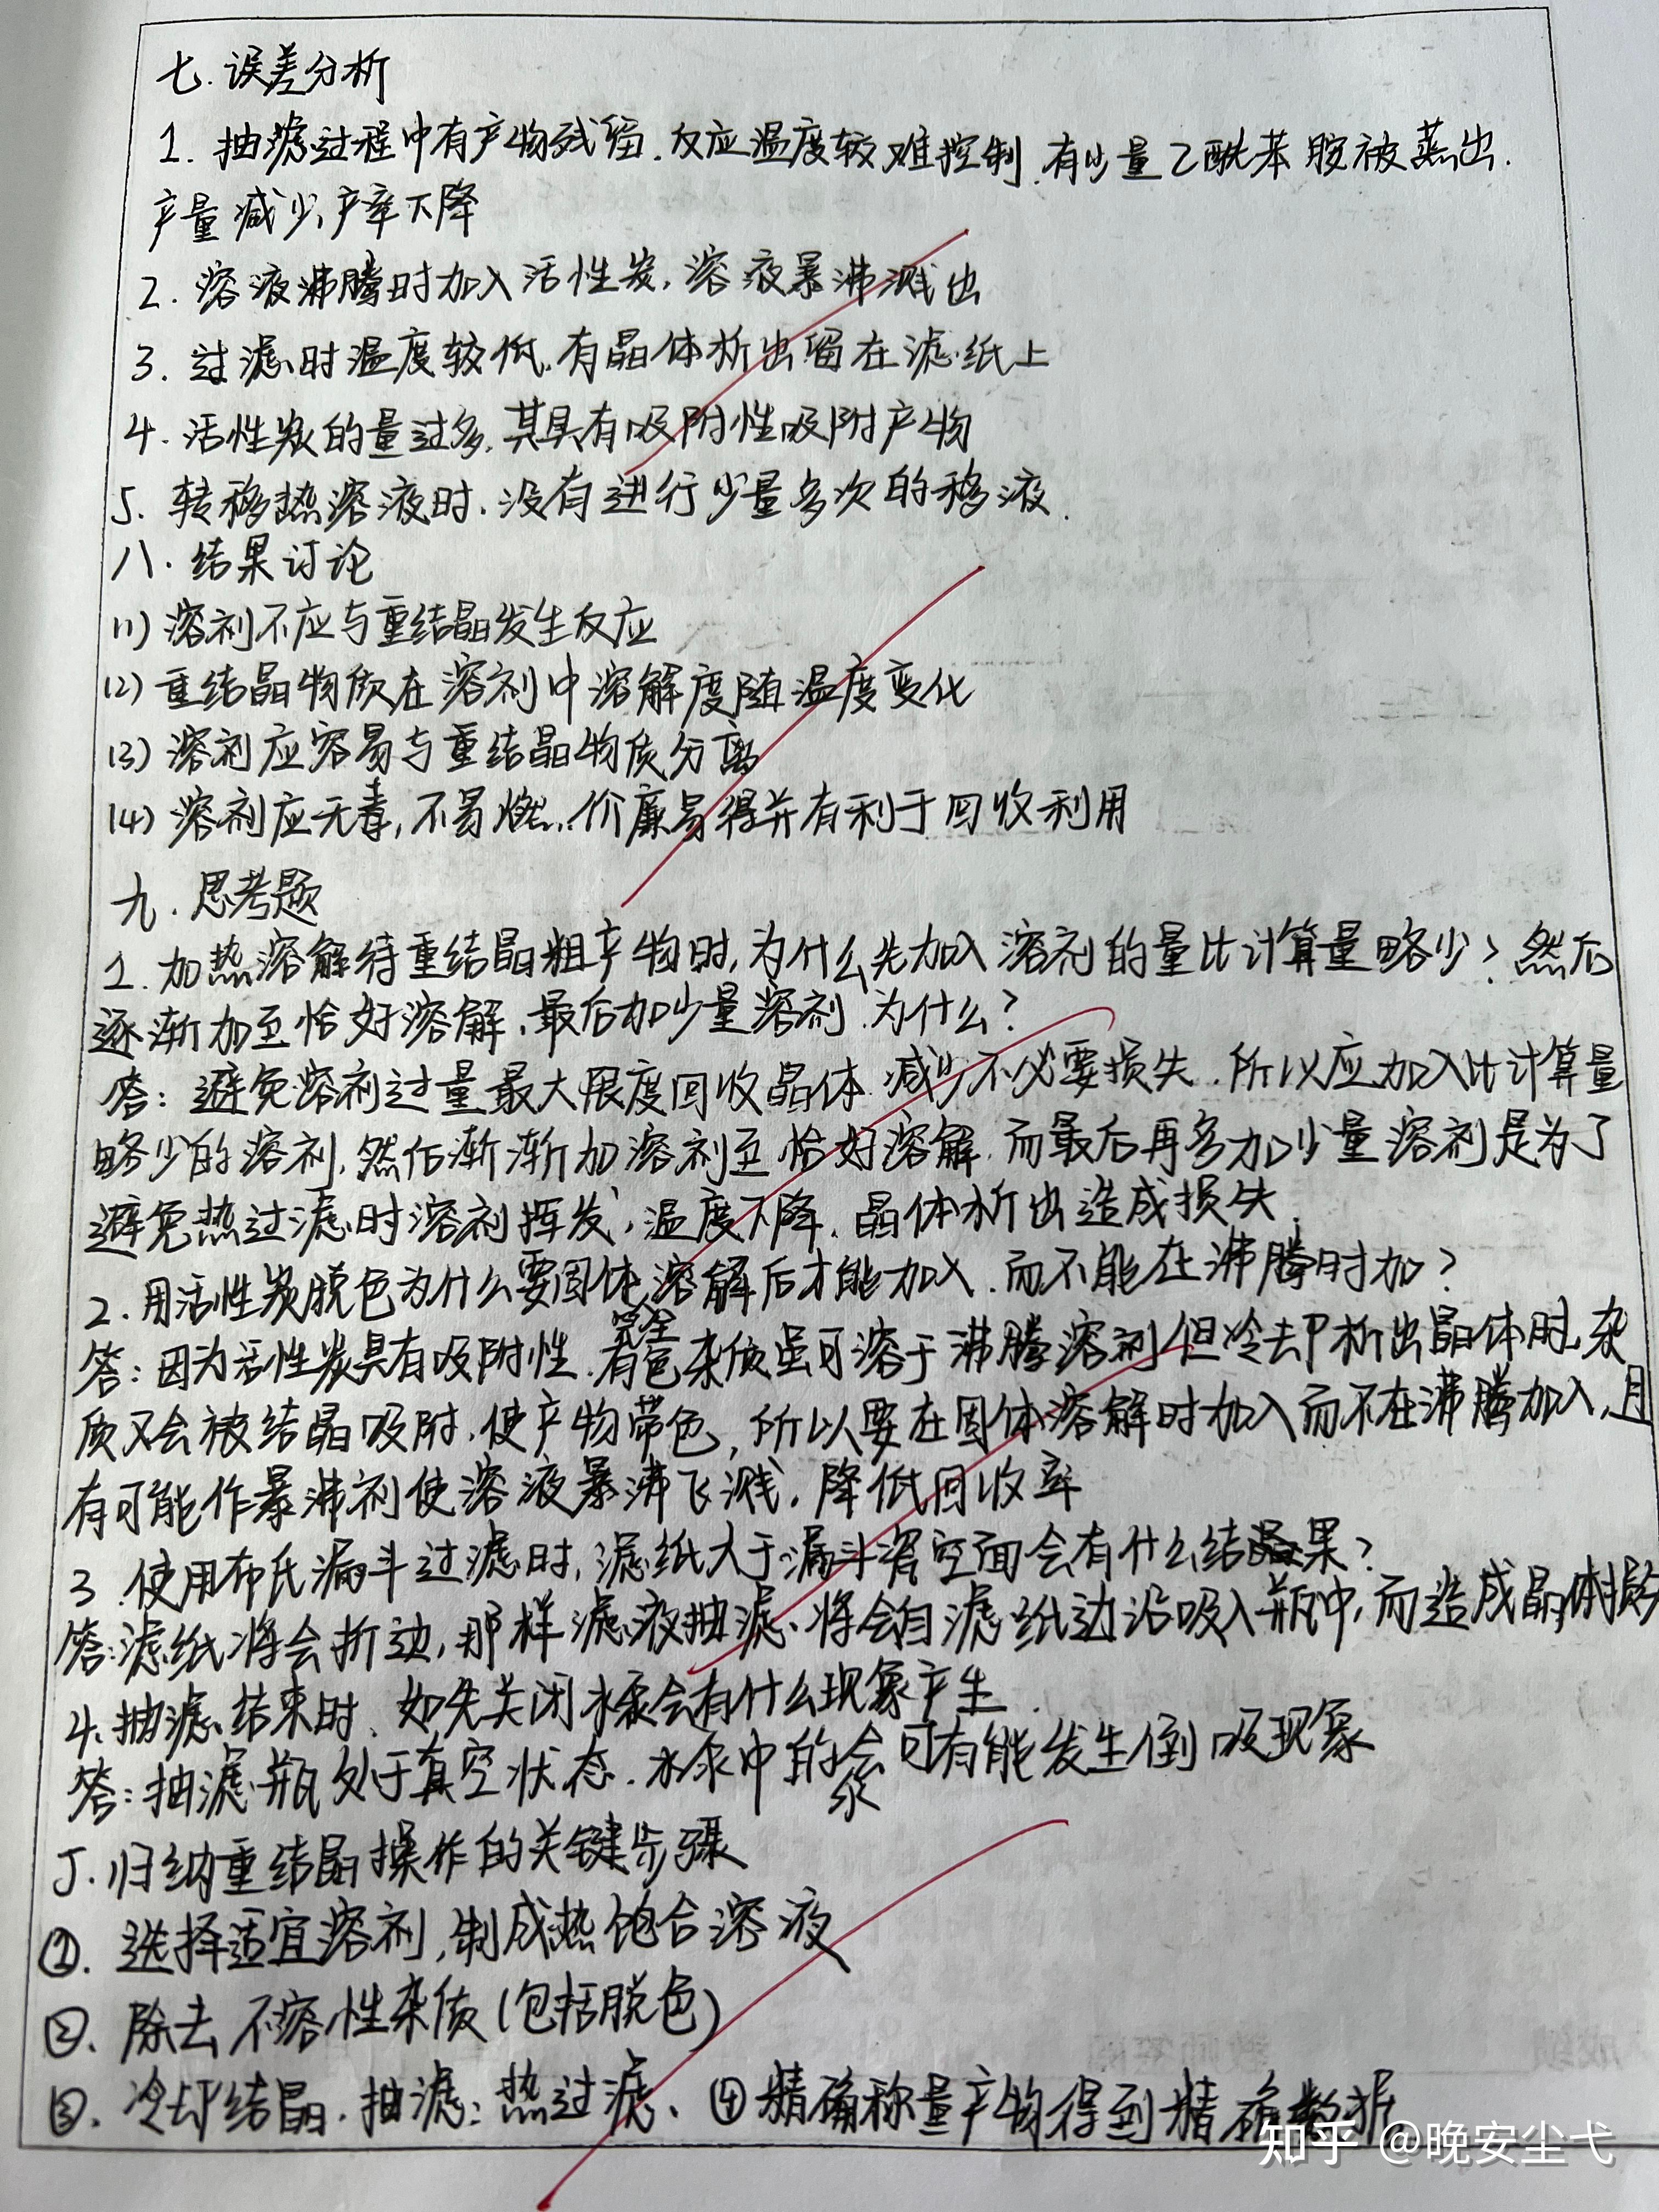 七.误差分析
1.抽滤过程中有产物残留.反应温度较难控制.有少量乙酰苯胺被蒸出.
产量减少,产率下降
2.溶液沸腾时加入活性炭,溶液暴沸溅出
3.过滤时温度较低,有晶体析出留在滤纸上
4.活性炭的量过多,其具有吸附性吸附产物
5.转移热溶液时,没有进行少量多次的移液.
八.结果讨论
(1)溶剂不应与重结晶发生反应
(2)重结晶物质在溶剂中溶解度随温度变化
(3)溶剂应容易与重结晶物质分离
(4)溶剂应无毒,不易燃,价廉易得并有利于回收利用
九.思考题
1.加热溶解待重结晶粗产物时,为什么先加入溶剂的量比计算量略少?然后
逐渐加至恰好溶解,最后加少量溶剂.为什么?
答:避免溶剂过量最大限度回收晶体.减少不必要损失.所以应加入比计算量
略少的溶剂,然后渐渐加溶剂至恰好溶解.而最后再多加少量溶剂是为了
避免热过滤时溶剂挥发,温度下降.晶体析出造成损失.
2.用活性炭脱色为什么要固体完全溶解后才能加入.而不能在沸腾时加?
答:因为活性炭具有吸附性.有色杂质虽可溶于沸腾溶剂但冷却析出晶体时,杂
质又会被结晶吸附.使产物带色,所以要在固体溶解时加入而不在沸腾加入,且
有可能作暴沸剂使溶液暴沸飞溅.降低回收率
3.使用布氏漏斗过滤时,滤纸大于漏斗瓷空面会有什么结果?
答:滤纸将会折边,那样滤液抽滤、将会自滤纸边沿吸入瓶中,而造成晶体损
4.抽滤结束时、如先关闭水泵会有什么现象产生.
答:抽滤瓶处于真空状态.水泵中的泵可有能发生倒吸现象
5.归纳重结晶操作的关键步骤
①.选择适宜溶剂,制成热饱合溶液
②.除去不溶性杂质(包括脱色)
③.冷却结晶.抽滤:热过滤、④精确称量产物得到精确数据
知乎 @晚安尘弋